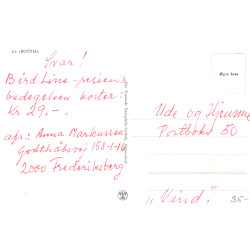 m/s »BOTNIA«
Svar!
Bird Line-rejsen's
bedøgelsen koster:
Kr 29,-.
afs: Anna Markussen
Godthåbsvej 158-1-16
2000 Frederiksberg
Ude og Hjemme
Postboks 50
„Vind."
35-